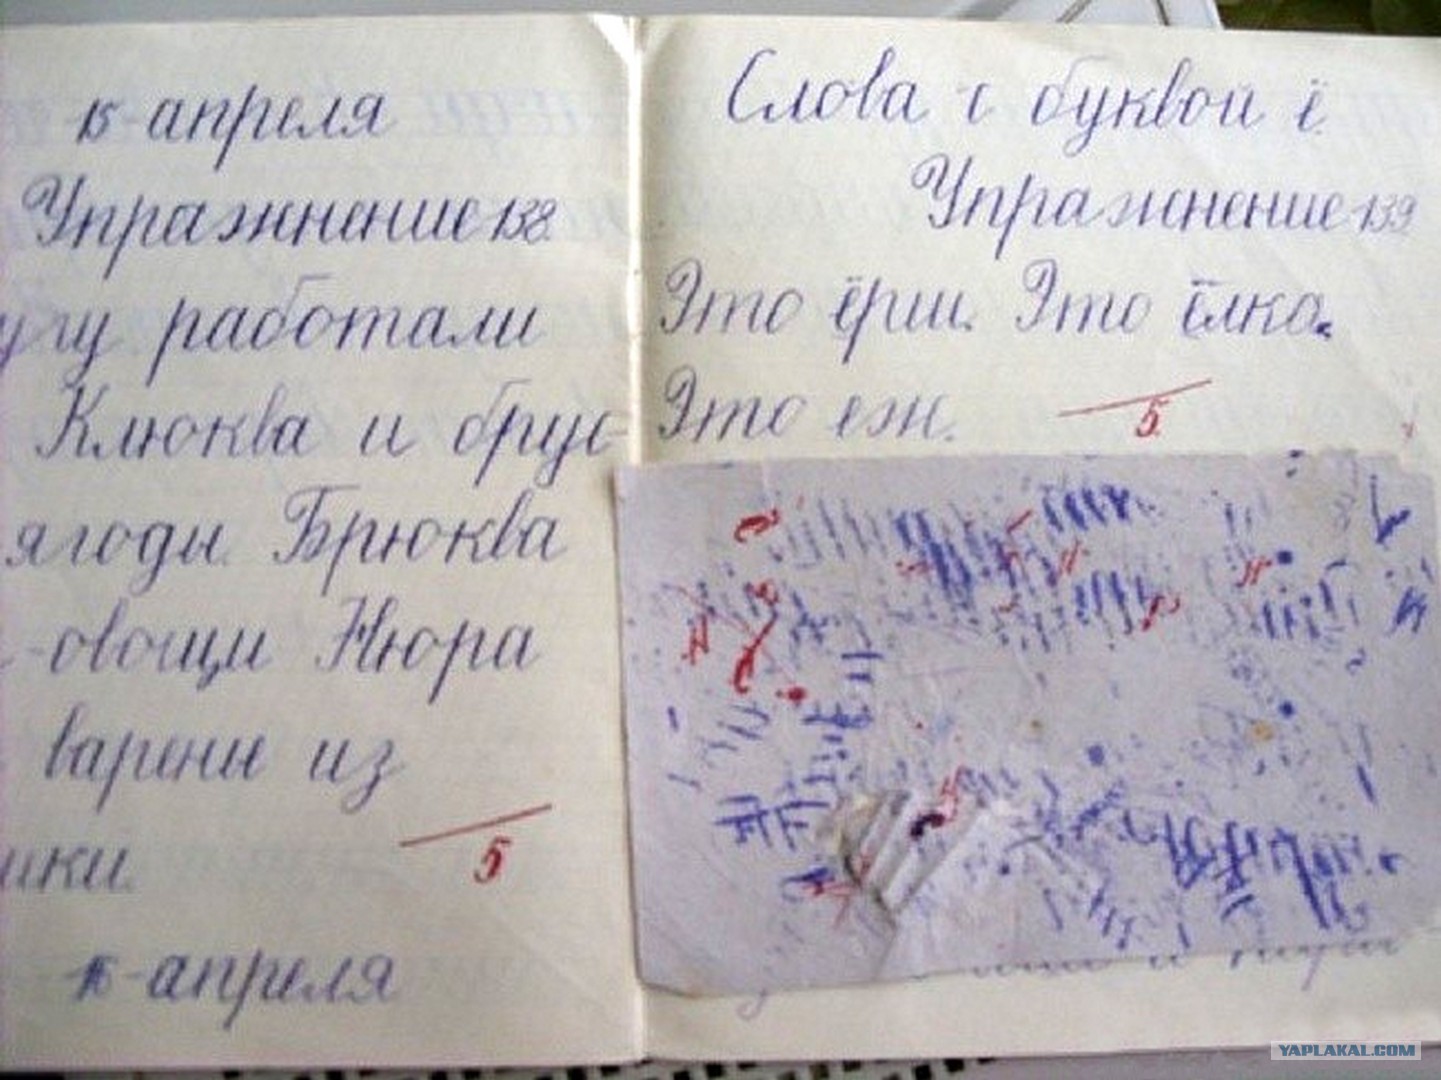 15-апреля
Упражнение 138.
работали
Клюква и брус-
ягоды. Брюква
-овощи Нюра
варенье из
16-апреля
5
Слова с буквой ё.
Упражнение 139
Это ёрш. Это ёлка.
Это еж.
5
YAPLAKAL.COM